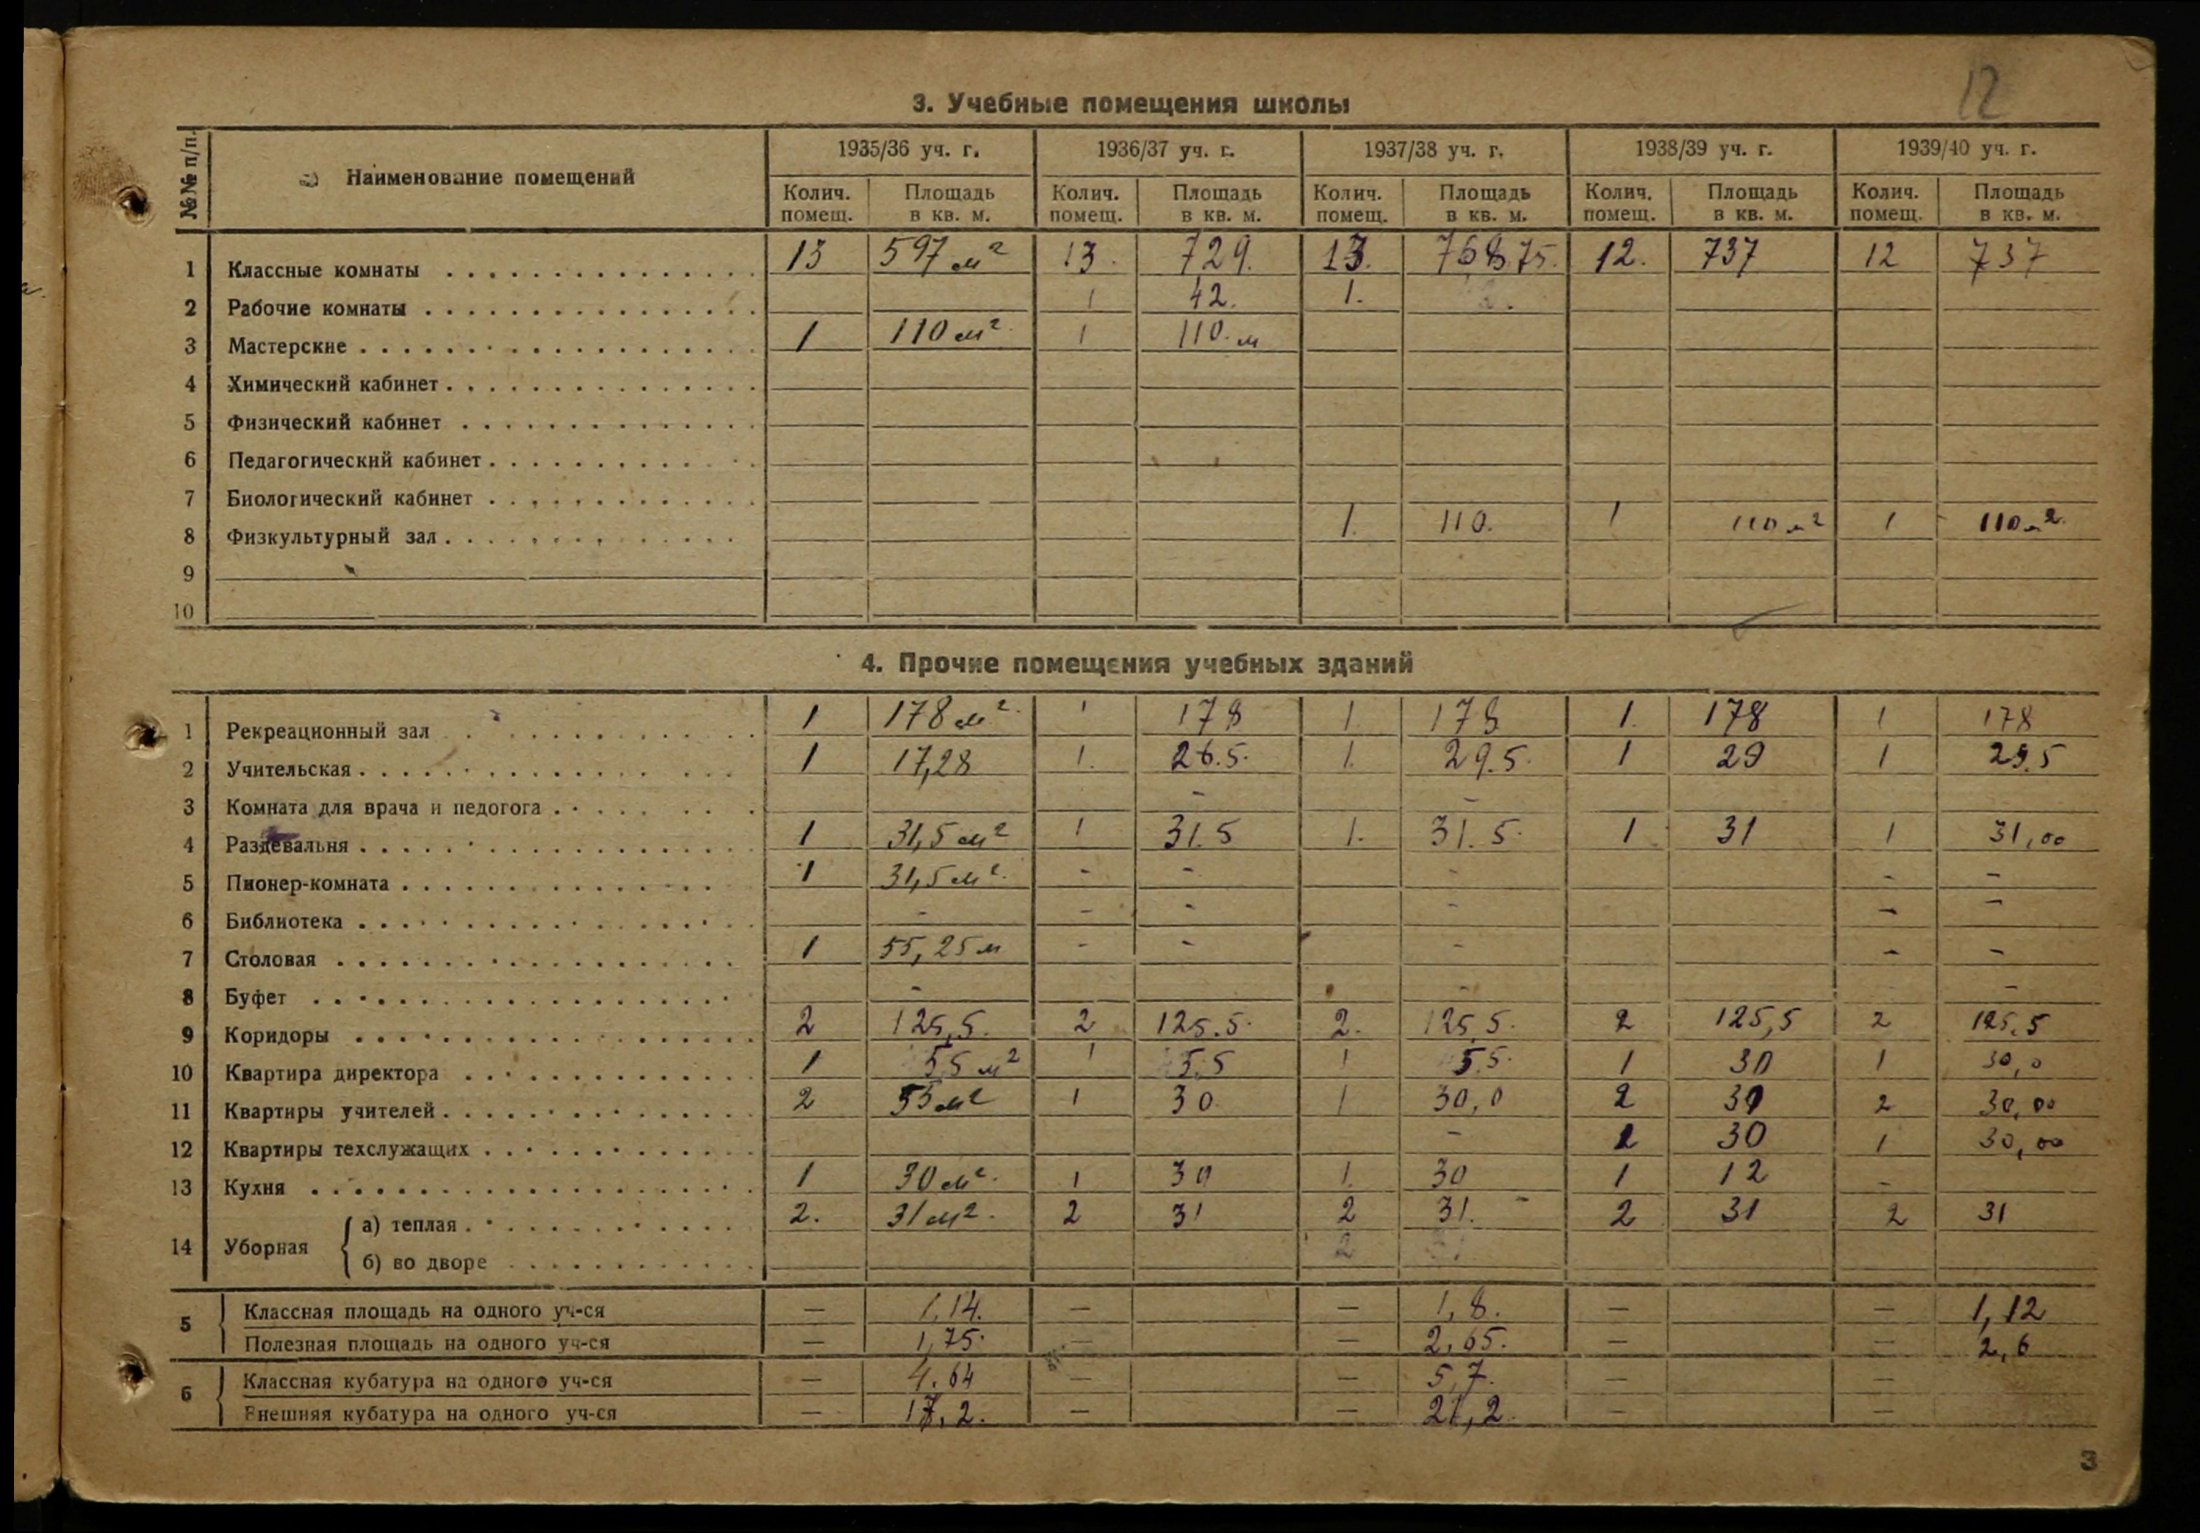 12
3. Учебные помещения школы
№№ п/п. Наименование помещений 1935/36 уч. г. 1936/37 уч. г. 1937/38 уч. г. 1938/39 уч. г. 1939/40 уч. г.
Колич. помещ. Площадь в кв. м. Колич. помещ. Площадь в кв. м. Колич. помещ. Площадь в кв. м. Колич. помещ. Площадь в кв. м. Колич. помещ. Площадь в кв. м.
1 Классные комнаты 13 597 м² 13. 729. 13. 768.75. 12. 737 12 737
2 Рабочие комнаты 1 42. 1.
3 Мастерские 1 110 м² 1 110. м
4 Химический кабинет
5 Физический кабинет
6 Педагогический кабинет
7 Биологический кабинет
8 Физкультурный зал 1. 110. 1 110 м² 1 110 м².
9
10
4. Прочие помещения учебных зданий
1 Рекреационный зал 1 178 м² 1 178 1. 178 1. 178 1 178
2 Учительская 1 17,28 1. 26.5. 1. 29.5. 1 29 1 29.5
3 Комната для врача и педогога - -
4 Раздевальня 1 31,5 м² 1 31.5 1. 31.5. 1 31 1 31,00
5 Пионер-комната 1 31,5 м² - - - - -
6 Библиотека - - - - - -
7 Столовая 1 55,25 м - - - - -
8 Буфет - - -
9 Коридоры 2 125,5. 2 125.5. 2. 125,5. 2 125,5 2 125.5
10 Квартира директора 1 55 м² 1 5.5 1 55. 1 30 1 30,0
11 Квартиры учителей 2 53 м² 1 30 1 30,0 2 30 2 30,00
12 Квартиры техслужащих - 2 30 1 30,00
13 Кухня 1 30 м². 1 30 1. 30 1 12 -
14 Уборная а) теплая 2. 31 м². 2 31 2 31. - 2 31 2 31
б) во дворе 2
5 Классная площадь на одного уч-ся — 1,14. — — 1,8. — — 1,12
Полезная площадь на одного уч-ся — 1,75. — — 2,65. — — 2,6
6 Классная кубатура на одного уч-ся — 4.64 — — 5,7. — —
Внешняя кубатура на одного уч-ся — 17,2. — — 21,2. — —
3